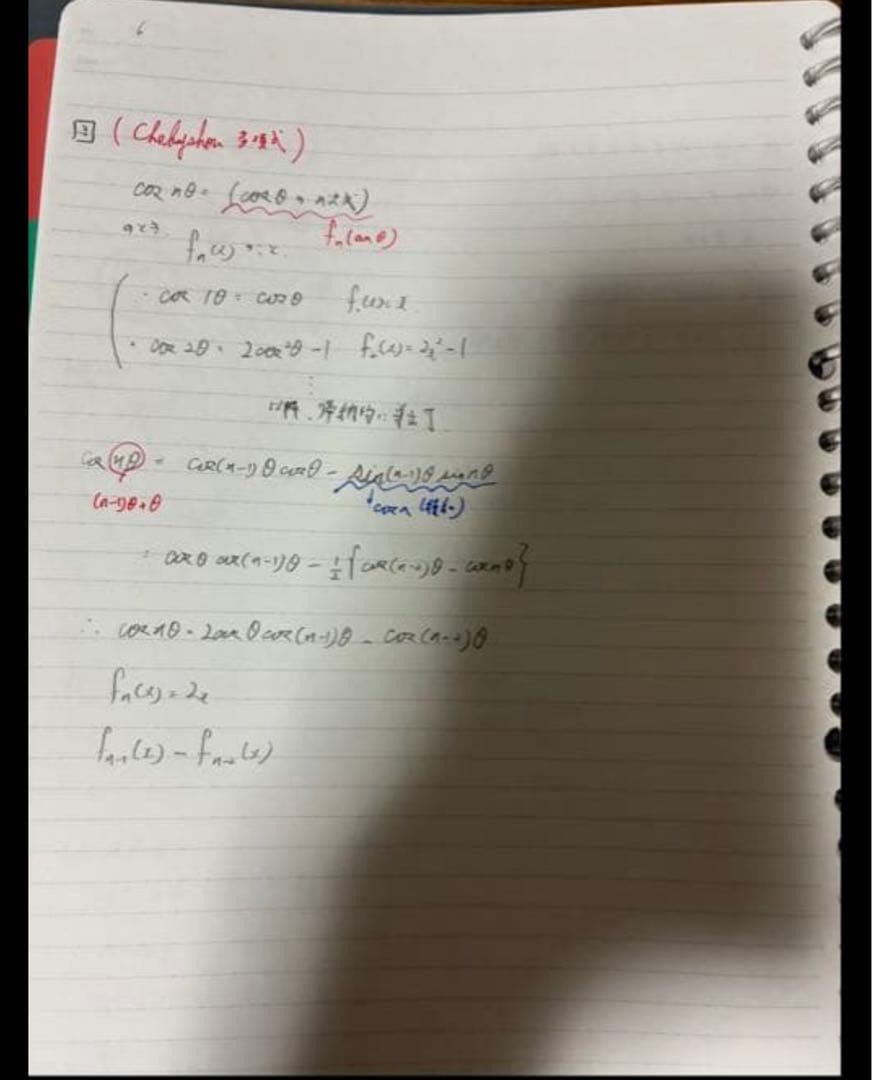 6
2 (Chebyshev 多項式)
cos nθ = (cosθ の n次式)
fn(cosθ)
fn(x)
・cos 1θ = cosθ f1(x)=x
・cos 2θ = 2cos²θ-1 f2(x)=2x²-1
⋮
以降、帰納的に
cos nθ = cos(n-1)θ cosθ - sin(n-1)θ sinθ
(n-1)θ+θ
= cosθ cos(n-1)θ - 1/2{cos(n-2)θ - cos nθ}
∴ cos nθ = 2cosθ cos(n-1)θ - cos(n-2)θ
fn(x) = 2x
fn-1(x) - fn-2(x)